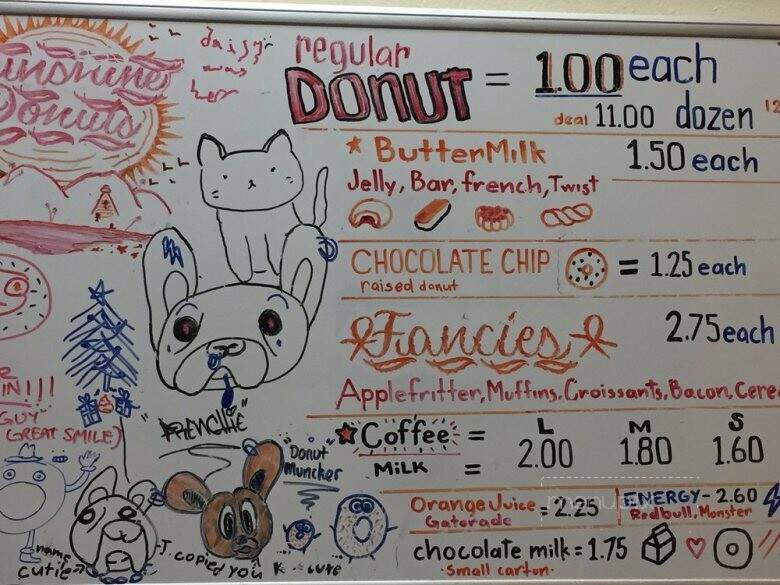 Sunshine
Donuts
daisy
was
her
regular
DONUT = 1.00 each
deal 11.00 dozen 12
ButterMilk 1.50 each
Jelly, Bar, french, Twist
CHOCOLATE CHIP = 1.25 each
raised donut
Fancies 2.75 each
Applefritter, Muffins, Croissants, Bacon, Cere
L M S
Coffee = 2.00 1.80 1.60
MiLK =
Orange Juice = 2.25
Gatorade
ENERGY - 2.60
Redbull, Monster
chocolate milk = 1.75
small carton
R
IN!!!
GUY"
GREAT SMILE)
"FRENCHIE"
"Donut
Muncker"
name
cutie
J. copied you K cute